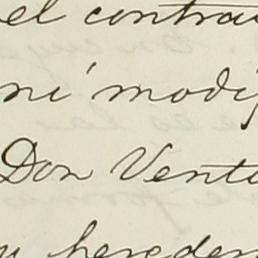 el contra
ni modif
Don Ventu
y hereder